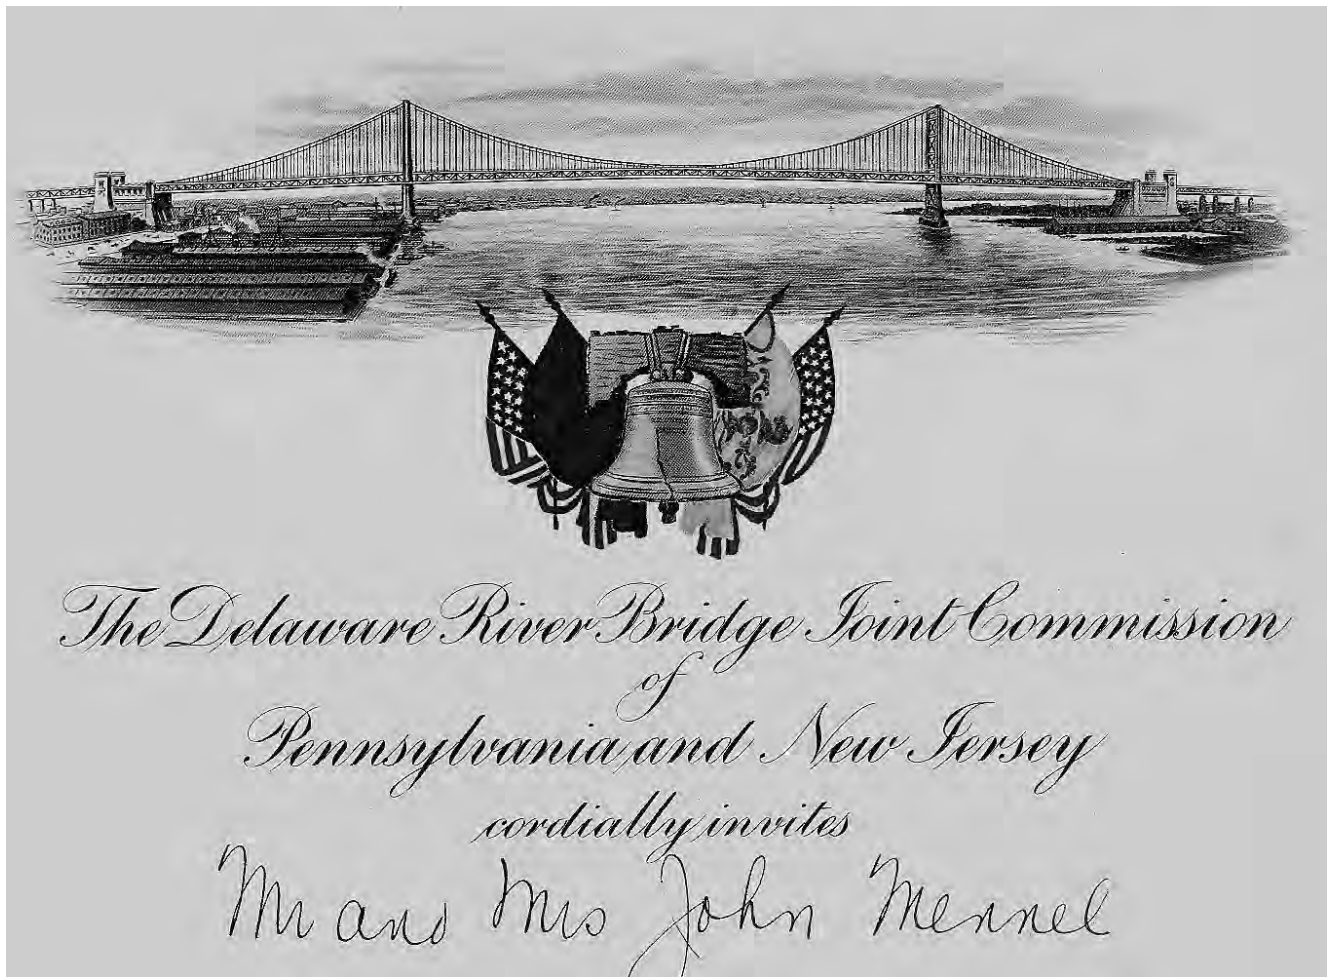 The Delaware River Bridge Joint Commission
of
Pennsylvania and New Jersey
cordially invites
Mr and Mrs John Mennel